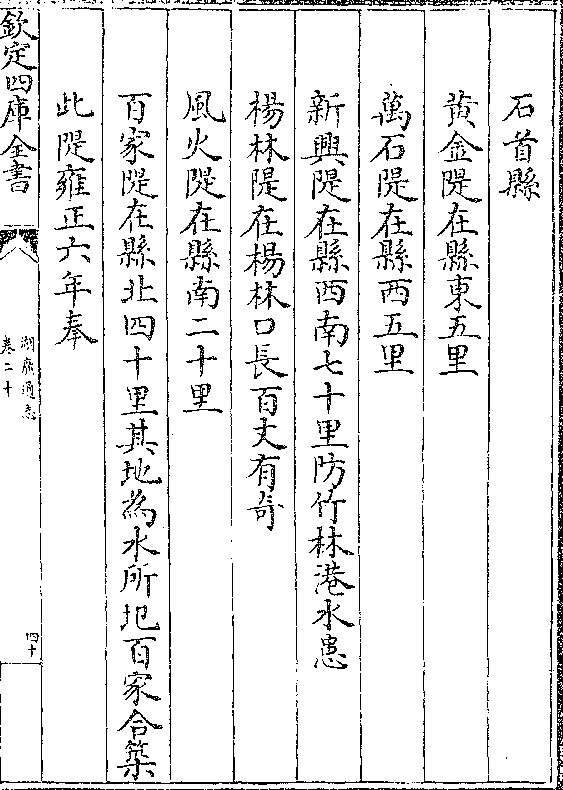 石首縣
黄金隄在縣東五里
萬石隄在縣西五里
新興隄在縣西南七十里防竹林港水患
楊林隄在楊林口長百丈有奇
風火隄在縣南二十里
百家隄在縣北四十里其地為水所圯百家合築
此隄雍正六年奉
欽定四庫全書
湖廣通志
卷二十
四十